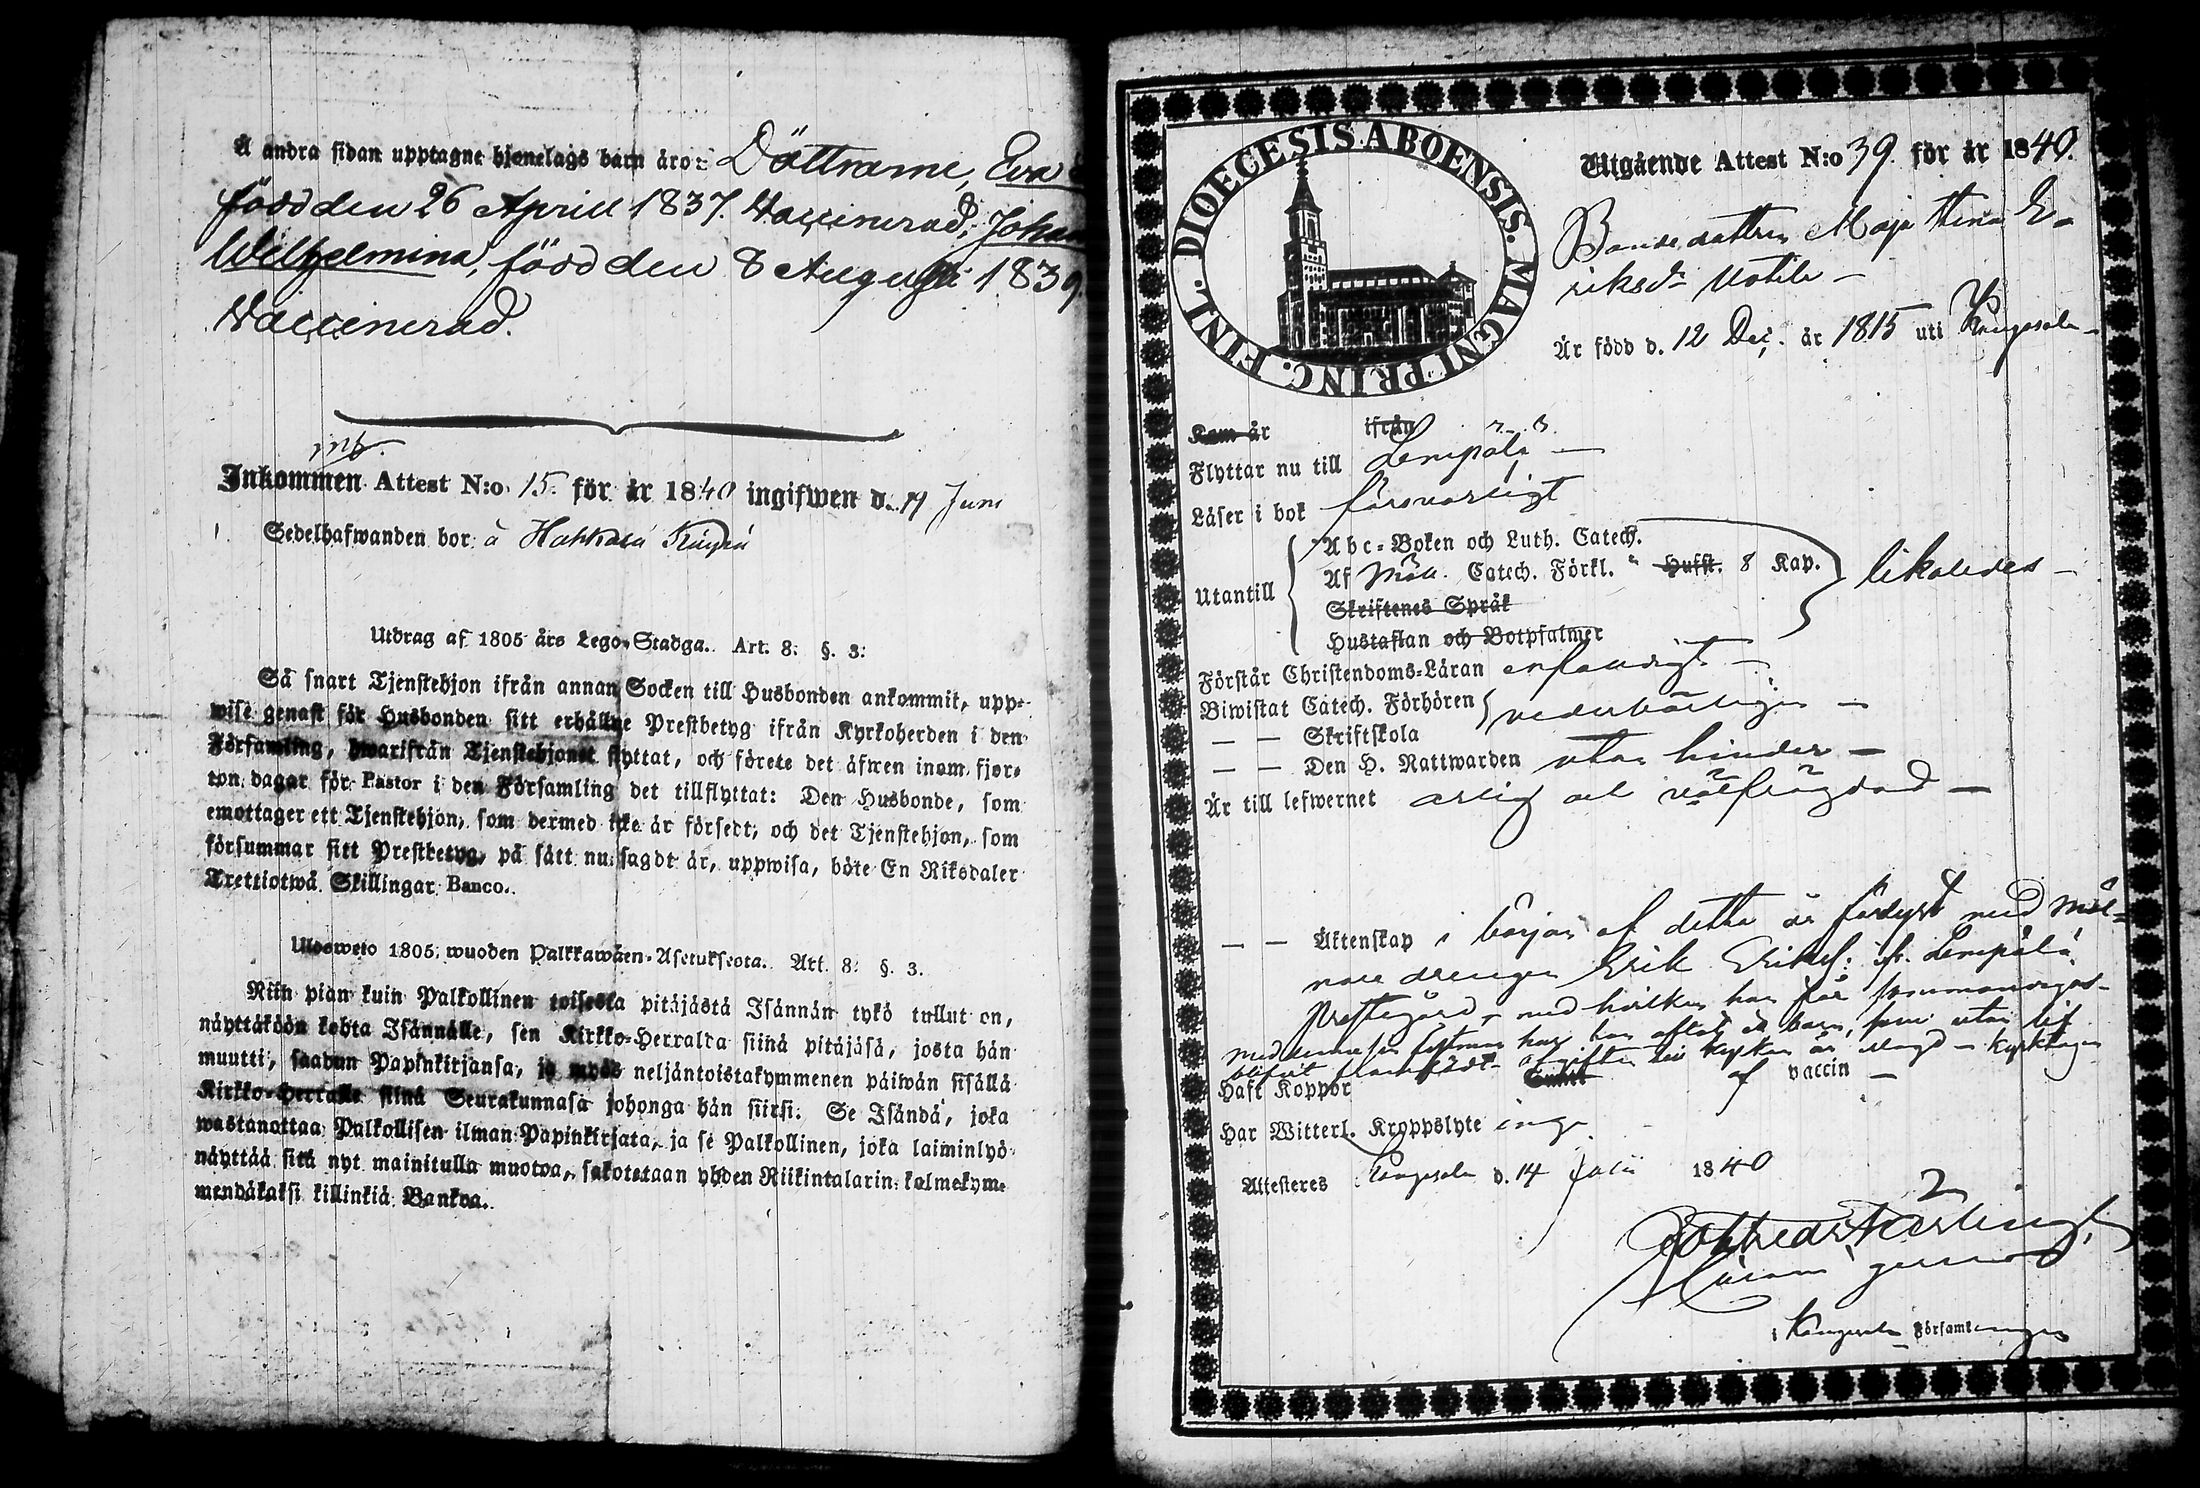 Å andra sidan upptagne hjonelags barn äro: Döttrarne, Eva
född den 26 Aprill 1837. Vaccinerad; Johan
Wilhelmina, född den 8 Augusti 1839.
Vaccinerad.
Inkommen Attest N:o 15. för år 1840 ingifwen d. 14 Juni
Sedelhafwanden bor å Hakkala
Utdrag af 1805 års Lego-Stadga. Art. 8. §. 3.
Så snart Tjenstehjon ifrån annan Socken till Husbonden ankommit, upp-
wise genast för Husbonden sitt erhållne Prestbetyg ifrån Kyrkoherden i den
Församling, hwarifrån Tjenstehjonet flyttat, och förete det äfwen inom fjor-
ton dagar för Pastor i den Församling det tillflyttat: Den Husbonde, som
emottager ett Tjenstehjon, som dermed icke är försedt, och det Tjenstehjon, som
försummar sitt Prestbetyg, på sätt nu sagdt är, uppwisa, böte En Riksdaler
Trettiotwå Skillingar Banco.
Ulosweto 1805 wuoden Palkkawäen-Asetuksesta. Art. 8. §. 3.
Niin pian kuin Palkollinen toisesta pitäjästä Isännän tykö tullut on,
näyttäköön kohta Isännälle, sen Kirkko-Herralda siinä pitäjäsä, josta hän
muutti, saadun Papinkirjansa, ja myös neljäntoistakymmenen päiwän sisällä
Kirkko-Herralle siinä Seurakunnasa johonga hän siirsi. Se Isändä, joka
wastanottaa Palkollisen ilman Papinkirjata, ja se Palkollinen, joka laiminlyö
näyttää sitä nyt mainitulla muotoa, sakotetaan yhden Riikintalarin kolmekym-
mendäkaksi killinkiä Bankoa.
DIOECESIS ABOENSIS. MAGNI PRINC. FINL.
Utgående Attest N:o 39. för år 1840.
Bondedottren Maja Stina E-
riksdr Uotila -
Är född d. 12 Dec. år 1815 uti Kangasala -
Kom år ifrån
Flyttar nu till Lempälä -
Läser i bok försvarligt
Utantill
Abc-Boken och Luth. Catech.
Af Möll. Catech. Förkl. Hufst. 8 Kap. likaledes -
Skriftenes Språk
Hustaflan och Botpsalmer
Förstår Christendoms-Läran enfaldigt -
Biwistat Catech. Förhören vederbörligen -
- - Skriftskola
- - Den H. Nattwarden utan hinder -
Är till lefwernet ärlig och välfrägdad -
- - Äktenskap i början af detta år fästyst med
drengen Erik Eriks: ifr. Lempälä
Prestegård - med hvilken hon får sammanvigas -
Haft Koppor Enligt af vaccin -
Har Witterl. Kroppslyte inge
Attesteres Kangasala d. 14 Julii 1840
i Kangasala Församlingen